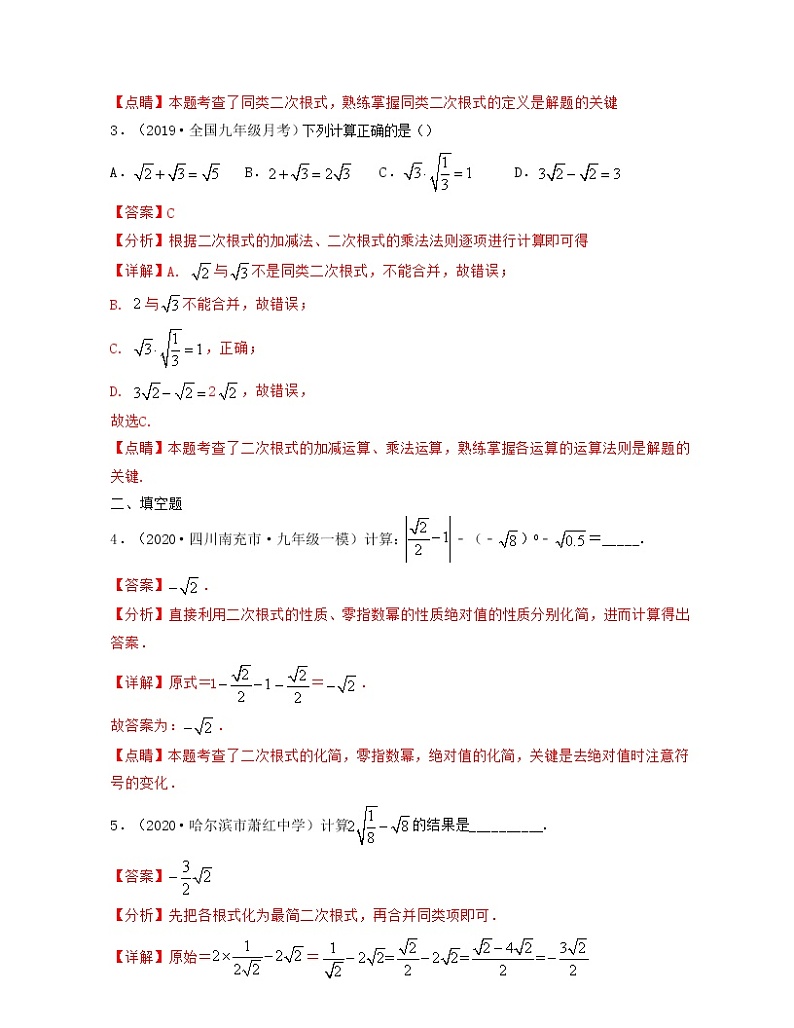 【点睛】本题考查了同类二次根式，熟练掌握同类二次根式的定义是解题的关键
3．（2019·全国九年级月考）下列计算正确的是（）
A．√2+√3=√5 B．2+√3=2√3 C．√3·√(1/3)=1 D．3√2−√2=3
【答案】C
【分析】根据二次根式的加减法、二次根式的乘法法则逐项进行计算即可得
【详解】A. √2与√3不是同类二次根式，不能合并，故错误；
B. 2与√3不能合并，故错误；
C. √3·√(1/3)=1，正确；
D. 3√2−√2=2√2，故错误，
故选C.
【点睛】本题考查了二次根式的加减运算、乘法运算，熟练掌握各运算的运算法则是解题的
关键.
二、填空题
4．（2020·四川南充市·九年级一模）计算：|√2/2−1|﹣（﹣√8）⁰﹣√0.5＝_____．
【答案】−√2．
【分析】直接利用二次根式的性质、零指数幂的性质绝对值的性质分别化简，进而计算得出
答案．
【详解】原式＝1−√2/2−1−√2/2＝−√2．
故答案为：−√2．
【点睛】本题考查了二次根式的化简，零指数幂，绝对值的化简，关键是去绝对值时注意符
号的变化．
5．（2020·哈尔滨市萧红中学）计算2√(1/8)−√8的结果是__________．
【答案】−3/2√2
【分析】先把各根式化为最简二次根式，再合并同类项即可．
【详解】原始＝2×1/(2√2)−2√2＝1/√2−2√2=√2/2−2√2=(√2−4√2)/2=−3√2/2